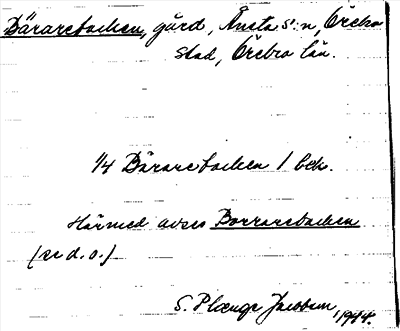 Bärarebacken, gård, Ånsta s:n, Örebro
stad, Örebro län.
1/4 Bärarebacken 1 bek.
Härmed avses Borrarebacken
(se d.o.)
S. Plænge Jacobson, 1944.